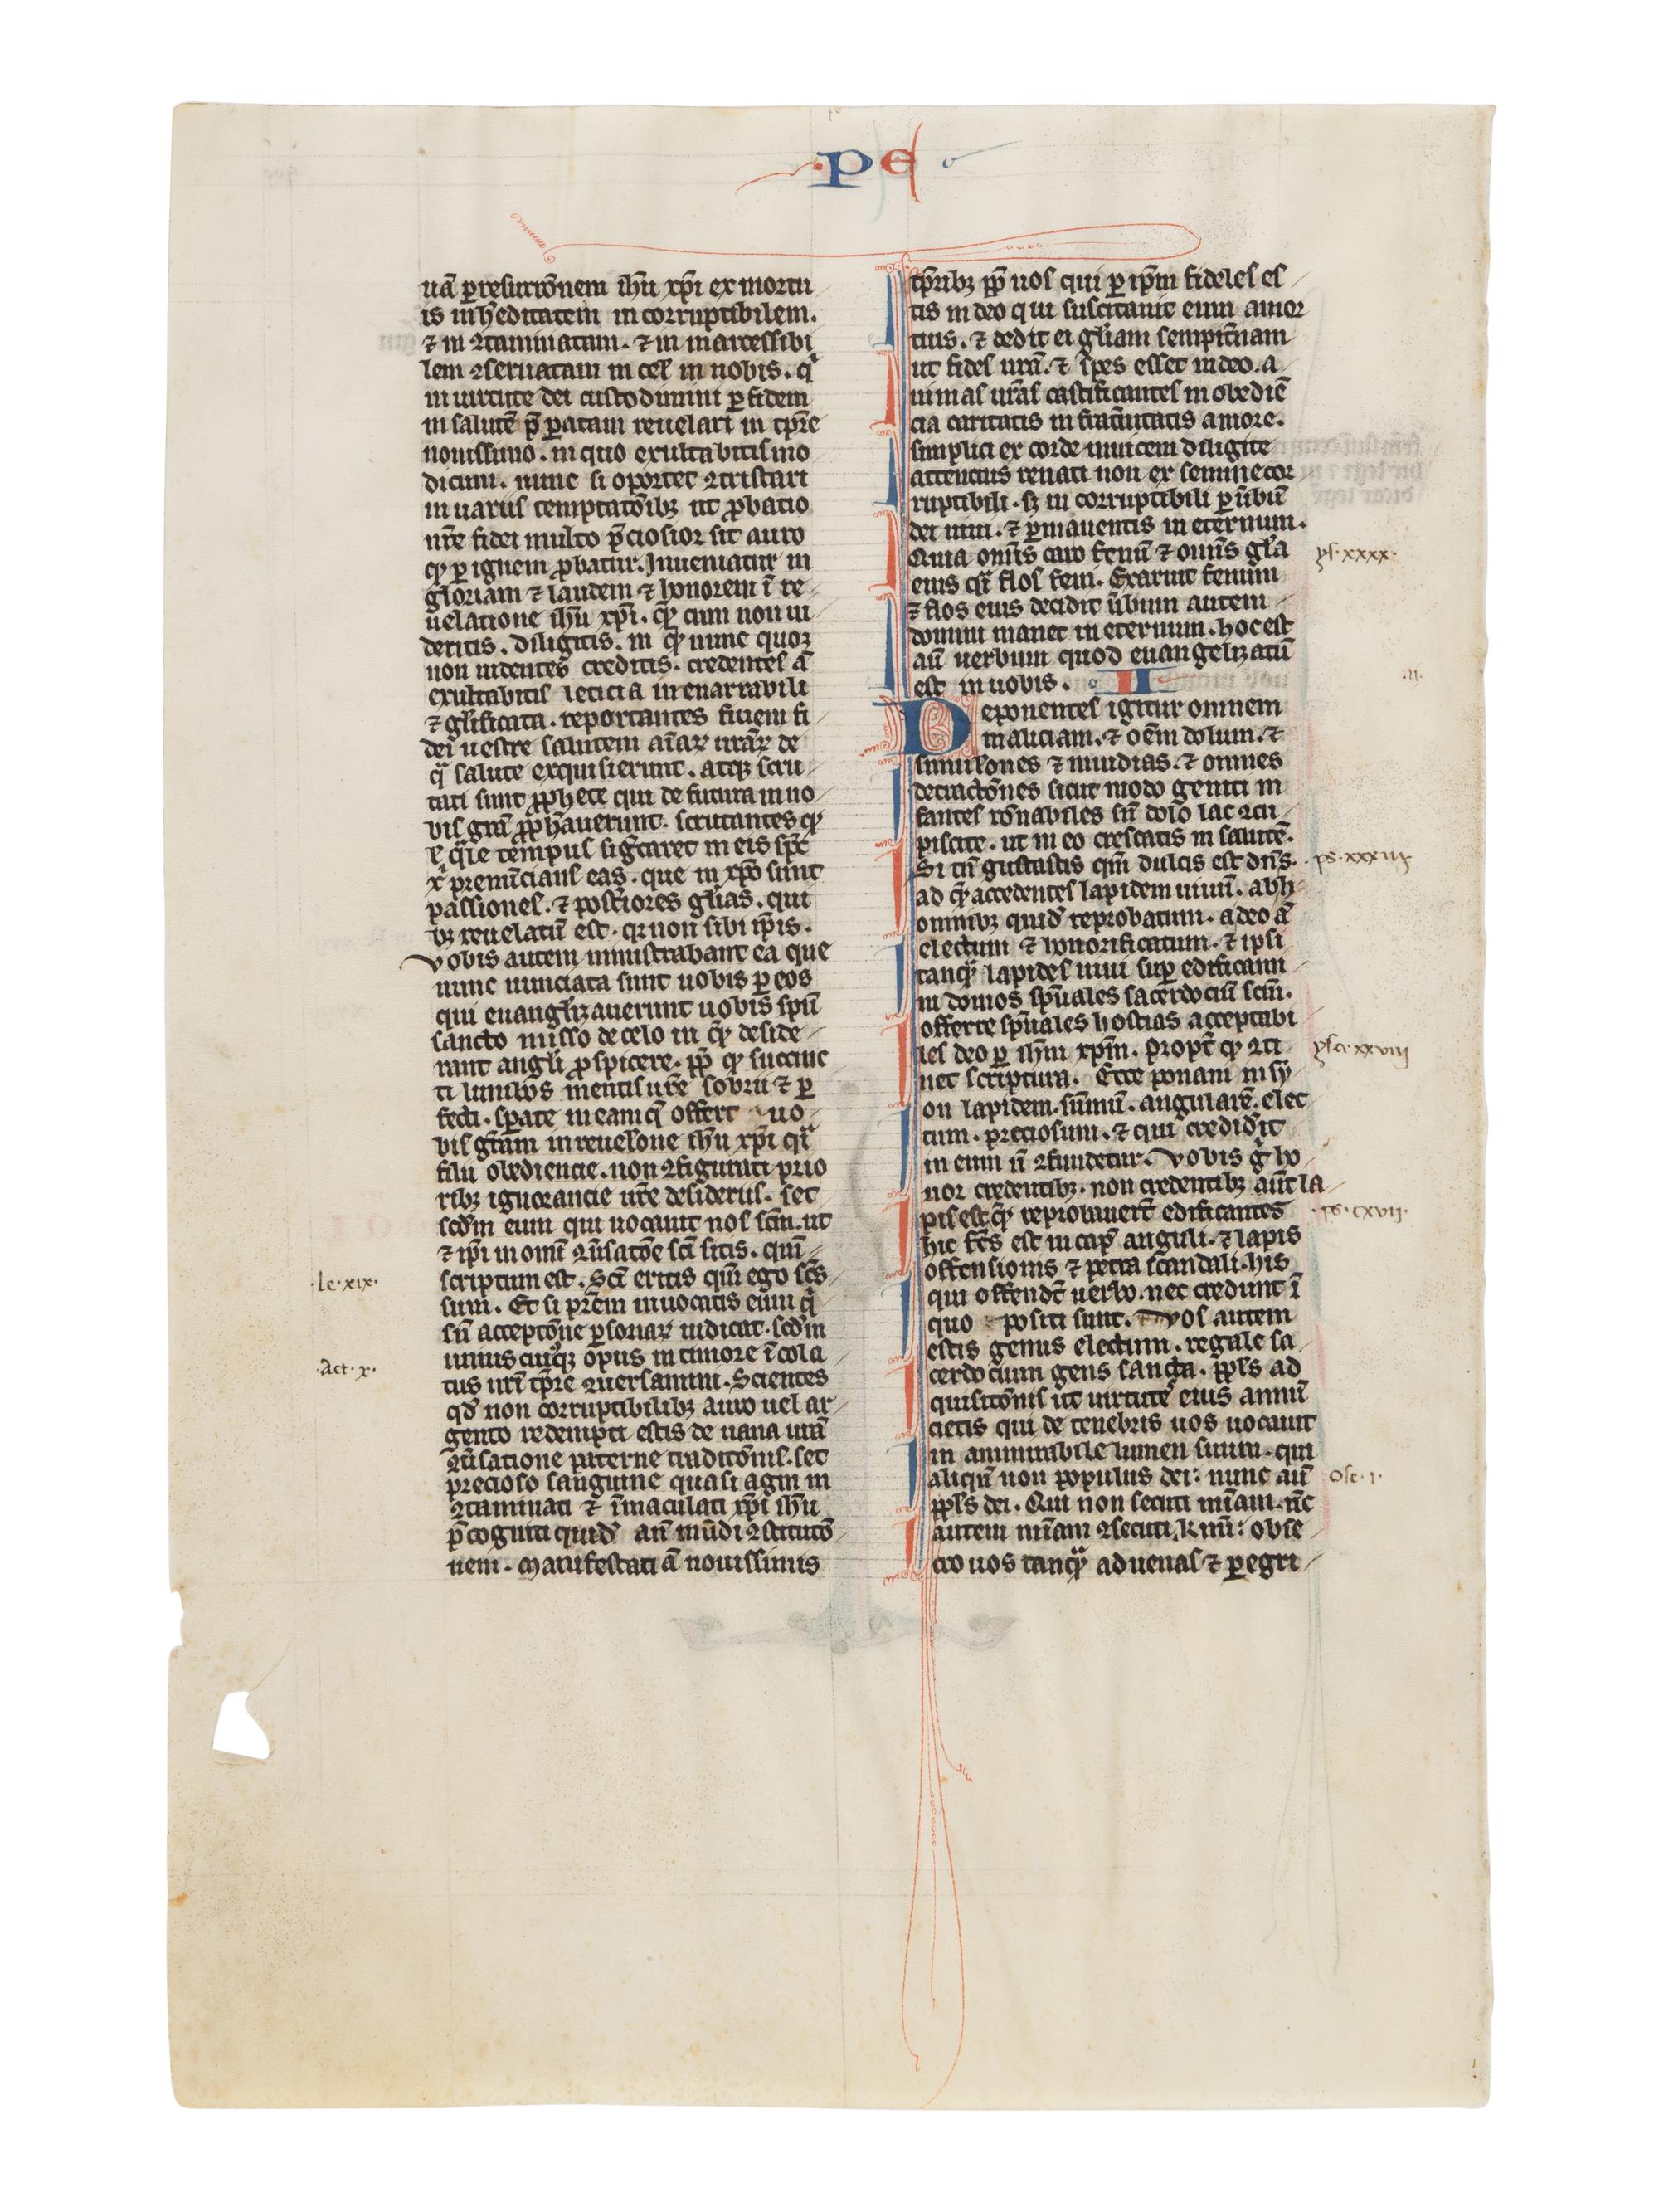 pe
uā ꝑ resurrcōnem ih̄u xp̄i ex mortu
is in heditatem in corruptibilem.
⁊ in ꝯtaminatam. ⁊ in marcessibi
lem ꝯseruatam in cel̄ in uobis. q
in uirtute dei custodimini ꝑ fidem
in salutē p̄ ꝑatam reuelari in tp̄re
nouissimo. in quo exultabitis mo
dicum. nunc si oportet ꝯtristari
in uariis temptatōibꝫ ut ꝓbatio
ur̄e fidei multo p̄ciosior sit auro
ꝙ ꝑ ignem ꝓbatur. Inueniatur in
gloriam ⁊ laudem ⁊ honorem ī re
uelatione ih̄u xp̄i. quē cum non ui
deritis. diligitis. in quē nunc quoꝫ
non uidentes creditis. credentes ā
exultabitis leticia inenarrabili
⁊ gl̄ificata. reportantes finem fi
dei uestre salutem aīaꝝ ur̄aꝝ de
q̄ salute exquisierunt. atqꝫ scru
tati sunt ꝓphete qui de futura in uo
bis gr̄a ꝓph̄auerunt. scrutantes
q̄le tempus siḡcaret in eis sp̄c
x̄ prenūcians eas. que in xp̄o sunt
passiones. ⁊ post̄iores gl̄ias. qui
bꝫ reuelatū est. q̄ non sibi ip̄is.
vobis autem ministrabant ea que
nunc nunciata sunt uobis ꝑ eos
qui euangl̄izauerunt uobis sp̄u
sancto misso de celo in quē deside
rant angl̄i ꝓspicere. pp̄ ꝙ succinc
ti lumbos mentis ur̄e sobrii ⁊ ꝑ
fecti. sꝑate in eam q̄ offert uo
bis gr̄am in reuel̄one ih̄u xp̄i q̄i
filii obediencie. non ꝯfigurati prio
ribꝫ ignorancie ur̄e desideriis. set
scd̄m eum qui uocauit uos sc̄m. ut
⁊ ip̄i in om̄i ꝯūsatōe sc̄i sitis. qm̄
scriptum est. Sc̄i eritis qm̄ ego sc̄s
·le·xix·
sum. Et si pr̄em inuocatis eum q
sn̄ acceptōne ꝑsonaꝝ iudicat. scd̄m
uniuscuiqꝫ opus in timore īcola
·Act·x·
tus ur̄i tp̄re ꝯuersamini. Scientes
qd̄ non corruptibilibꝫ auro uel ar
gento redempti estis de uana ur̄a
ꝯūsatione paterne traditōnis. set
precioso sanguine quasi agni in
ꝯtaminati ⁊ īmaculati xp̄i ih̄u
p̄cogniti quid̄ an̄ mūdi ꝯstitutō
nem. Manifestati ā nouissimis
tp̄ribꝫ pp̄ uos qui ꝑ ip̄m fideles es
tis in deo qui suscitauit eum a mor
tuis. ⁊ dedit ei gl̄iam sempit̄nam
ut fides ur̄a. ⁊ spes esset in deo. a
nimas ur̄as castificantes in obediē
cia caritatis in frat̄nitatis amore.
simplici ex corde inuicem diligite
attentius renati non ex semine cor
ruptibili. sꝫ in corruptibili ꝑ ūbū
dei uiui. ⁊ ꝑmanentis in eternum.
Quia omīs caro fenū ⁊ omīs gl̄a
ys·xxxx·
eius q̄i flos feni. Exaruit fenum
⁊ flos eius decidit ūbum autem
domini manet in eternum. hoc est
aū uerbum quod euangelizatū
est in uobis. II
·ii·
Deponentes igitur omnem
maliciam. ⁊ oēm dolum. ⁊
simul̄ones ⁊ inuidias. ⁊ omnes
detractōnes sicut modo geniti in
fantes rōnabiles sn̄ dolo lac ꝯcu
piscite. ut in eo crescatis in salutē.
Si tn̄ gustastis qm̄ dulcis est dn̄s.
·ps·xxxiii·
ad quē accedentes lapidem uiuū. ab h
omnibꝫ quid̄ reprobatum. a deo ā
electum ⁊ honorificatum. ⁊ ipsi
tanqͣ lapides uiui suꝑ edificami
in domos sp̄uales sacerdociū sc̄m.
offerre sp̄uales hostias acceptabi
les deo ꝑ ih̄m xp̄m. Propt̄ ꝙ ꝯti
ysa·xxviii
net scriptura. Ecce ponam in sy
on lapidem. sūmū. angularē. elec
tum. preciosum. ⁊ qui credid̄it
in eum n̄ ꝯfundetur. Vobis g ho
nor credentibꝫ. non credentibꝫ aūt la
pis est quē reprobauert̄ edificantes
·ps·cxvii·
hic fc̄s est in cap̄ anguli. ⁊ lapis
offensionis ⁊ petra scandali. his
qui offendt̄ uerbo. nec credunt ī
quo positi sunt. Vos autem
estis genus electum. regale sa
cerdocium gens sancta. pp̄ls ad
quisitōnis ut uirtutē eius annū
cietis qui de tenebris uos uocauit
in ammirabile lumen suum. qui
aliqn̄ non populus dei: nunc aū
ose·i·
pp̄ls dei. Qui non secuti mīam. nc̄
autem mīam ꝯsecuti. kmī: obse
cro uos tanqͣ aduenas ⁊ ꝑegri